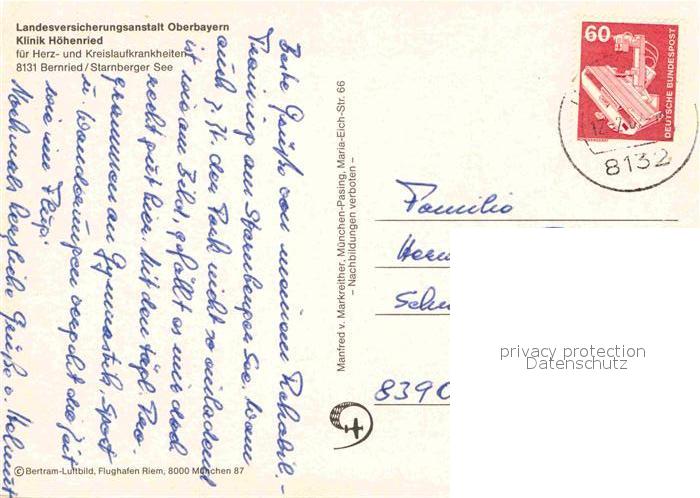 Landesversicherungsanstalt Oberbayern
Klinik Höhenried
für Herz- und Kreislaufkrankheiten
8131 Bernried / Starnberger See
Beste Grüße von meinem Rehabil.-
Training am Starnberger See. Wenn
auch z. Zt. der Park nicht so einladend
ist wie am Bild, gefällt es mir doch
recht gut hier. Mit den tägl. Pro-
grammen an Gymnastik, Sport
u. Wanderungen vergeht die Zeit
wie im Flug.
Nochmals herzliche Grüße v. Helmut
© Bertram-Luftbild, Flughafen Riem, 8000 München 87
Manfred v. Markreither, München-Pasing, Maria-Eich-Str. 66
– Nachbildungen verboten –
60
DEUTSCHE BUNDESPOST
8132
Familie
8390
privacy protection
Datenschutz